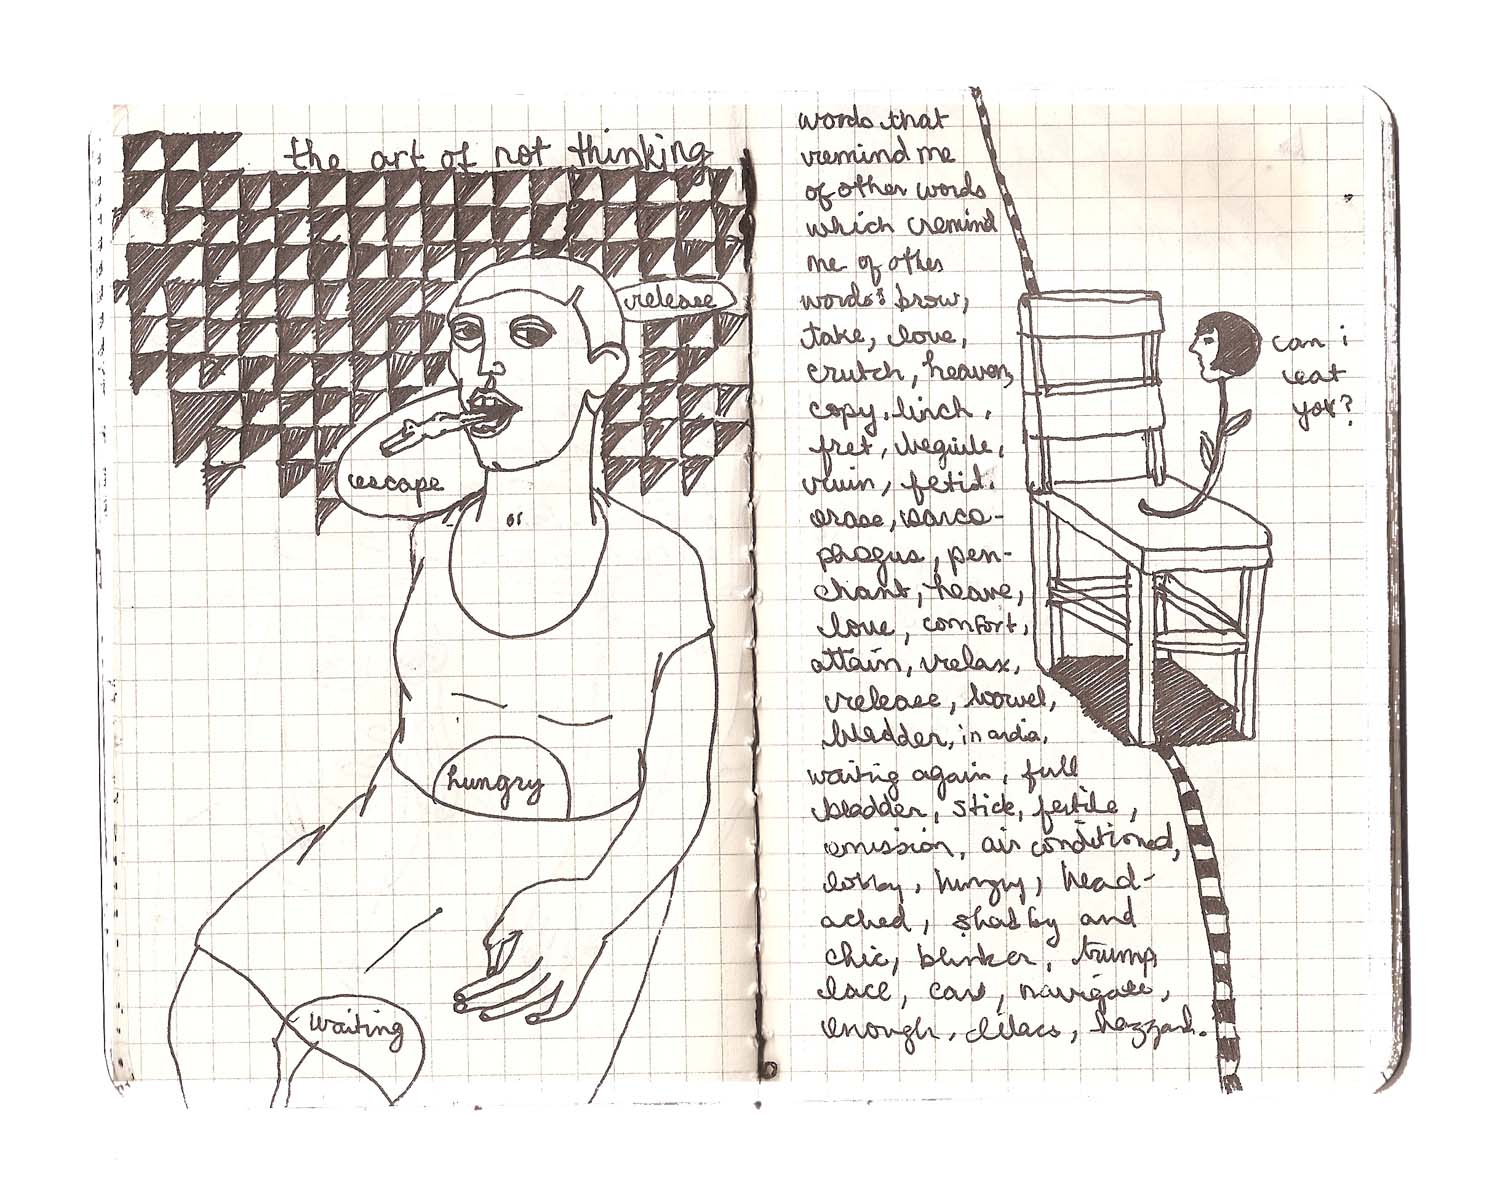 the art of not thinking
release
escape
or
hungry
waiting
words that
remind me
of other words
which remind
me of other
words: brow,
take, love,
crutch, heaven,
copy, linch,
fret, beguile,
ruin, fetid.
erase, sarco-
phagus, pen-
chant, heave,
love, comfort,
attain, relax,
release, bowel,
bladder,
waitig again, full
bladder, stick, fertile,
emission, air conditioned,
lobby, hungry, head-
ached, shabby and
chic, blinker, trump,
lace, navigate,
enough, lilacs, hazzard.
can i
eat
you?